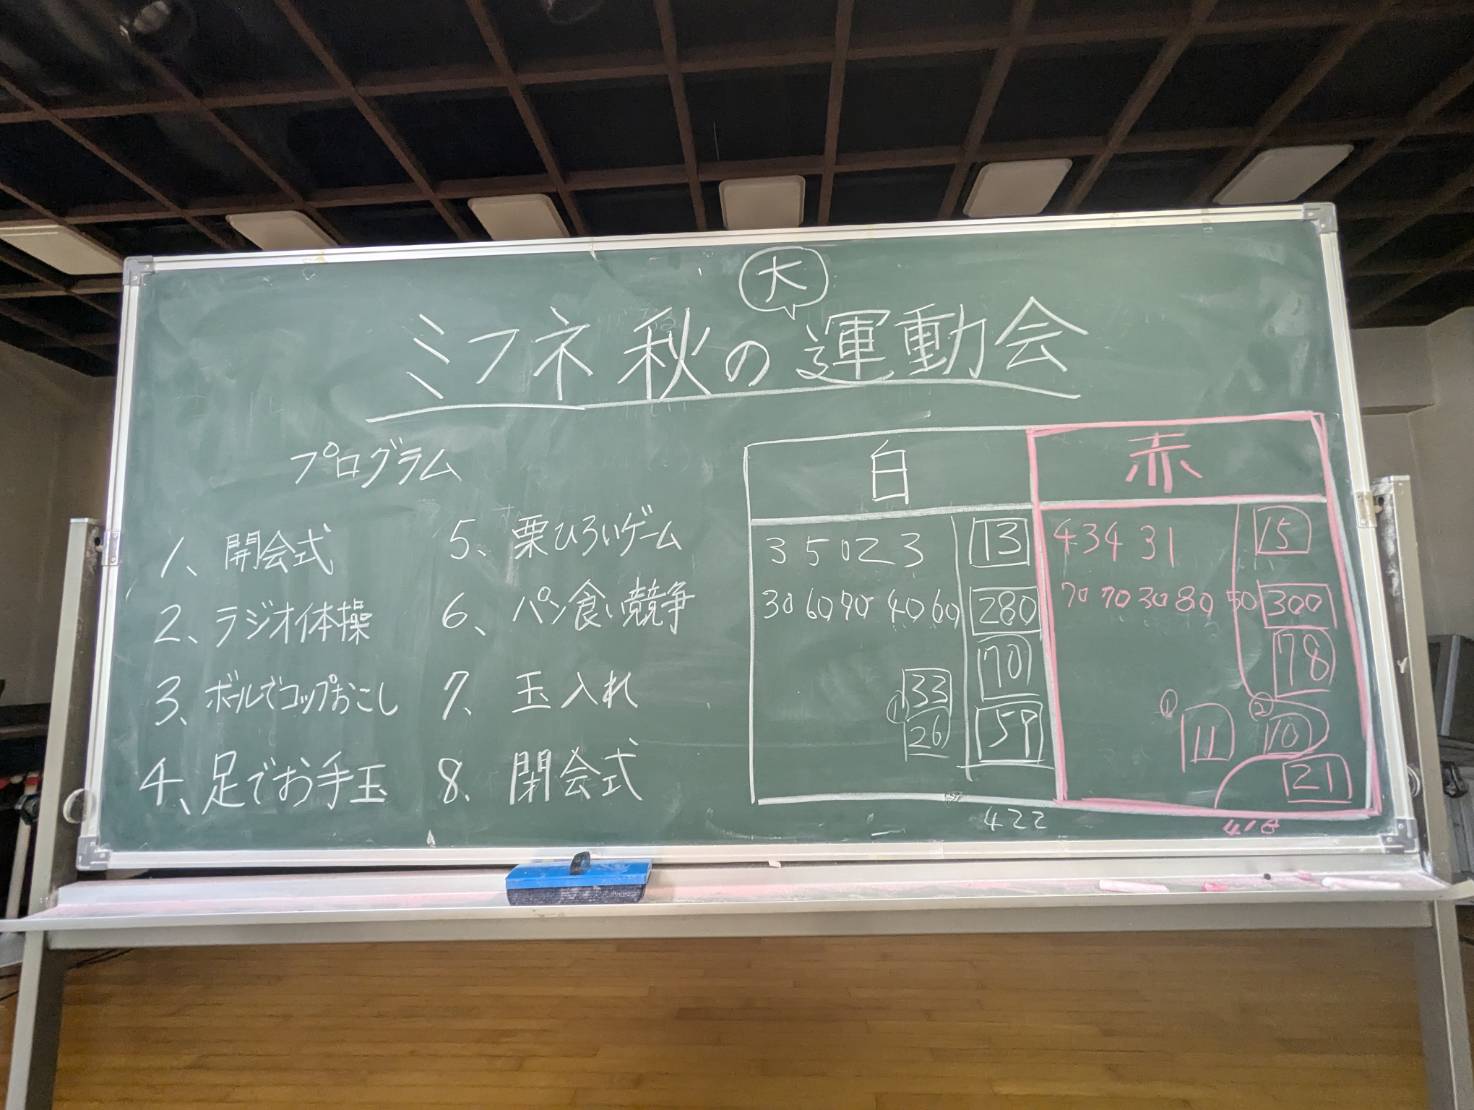 大
ミフネ 秋の運動会
プログラム
1、開会式
2、ラジオ体操
3、ボールでコップおこし
4、足でお手玉
5、栗ひろいゲーム
6、パン食い競争
7、玉入れ
8、閉会式
白
3 5 0 2 3 13
30 60 90 40 60 280
70
① 33
26
59
422
赤
4 3 4 3 1 15
70 70 30 80 50 300
78
① 11 ② 10
21
418